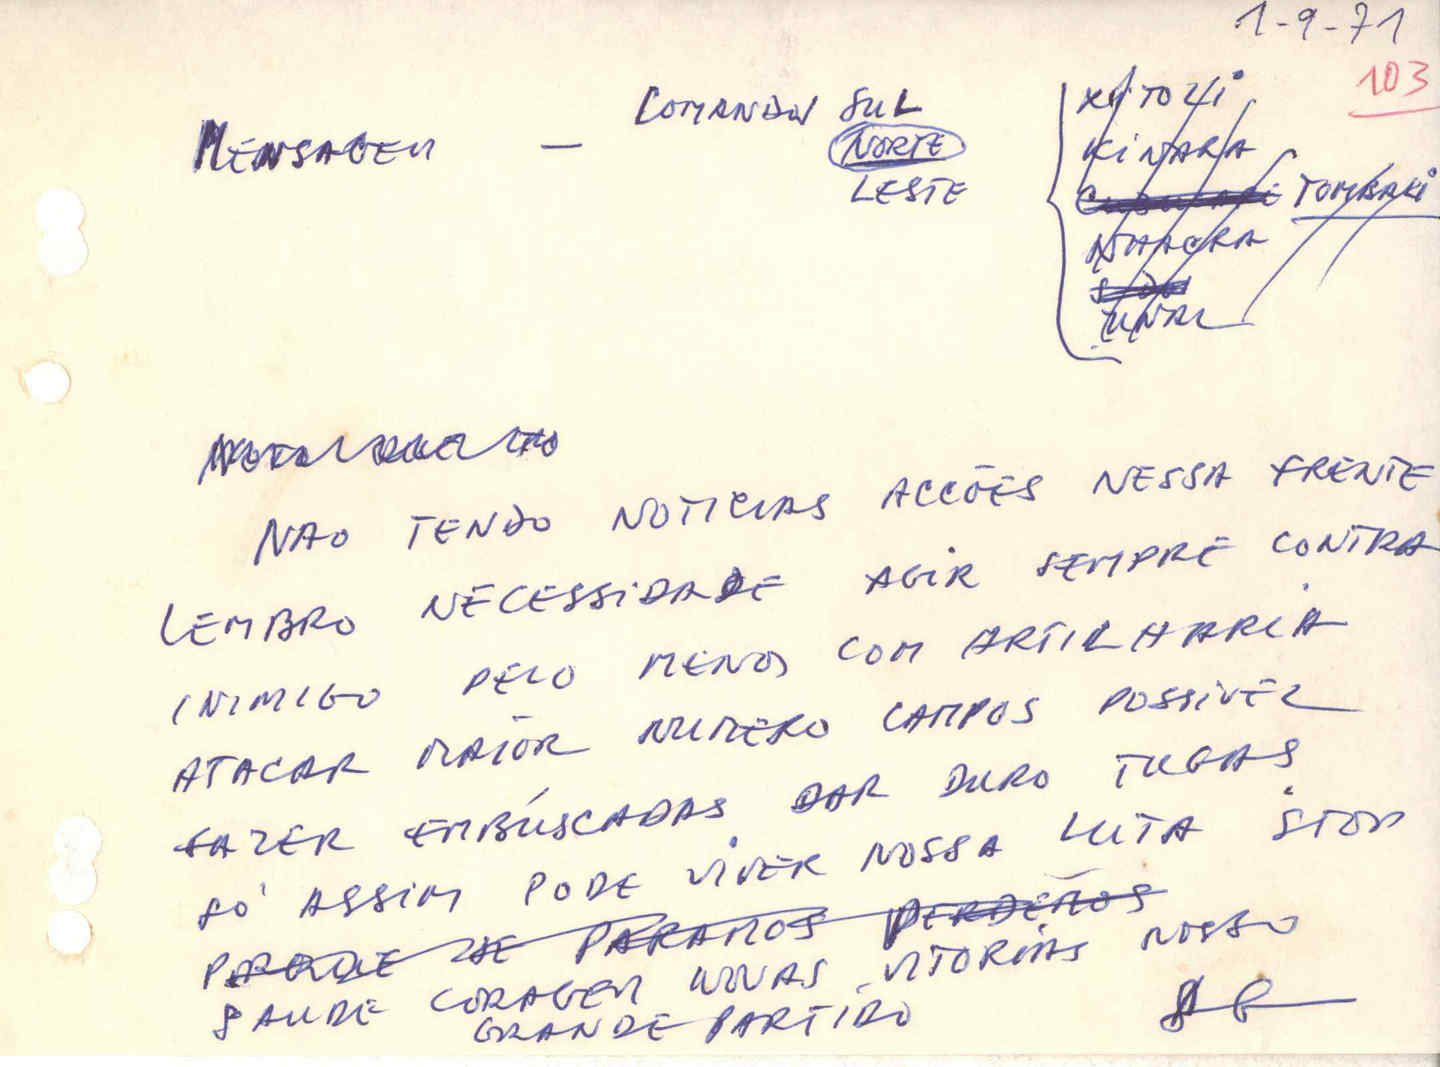 1-9-71
103
MENSAGEM — COMANDOS SUL
NORTE
LESTE
XITOLI
KINARA
CUBUCARÉ TOMBAKI
NHACRA
UNAL
NAO TENDO NOTICIAS ACCÕES NESSA FRENTE
LEMBRO NECESSIDADE AGIR SEMPRE CONTRA
INIMIGO PELO MENOS COM ARTILHARIA
ATACAR MAIOR NUMERO CAMPOS POSSIVEL
FAZER EMBUSCADAS DAR DURO TUGAS
SÓ ASSIM PODE VIVER NOSSA LUTA STOP
PORQUE SE PARAMOS PERDEMOS
SAUDE CORAGEM NOVAS VITORIAS NOSSO
GRANDE PARTIDO